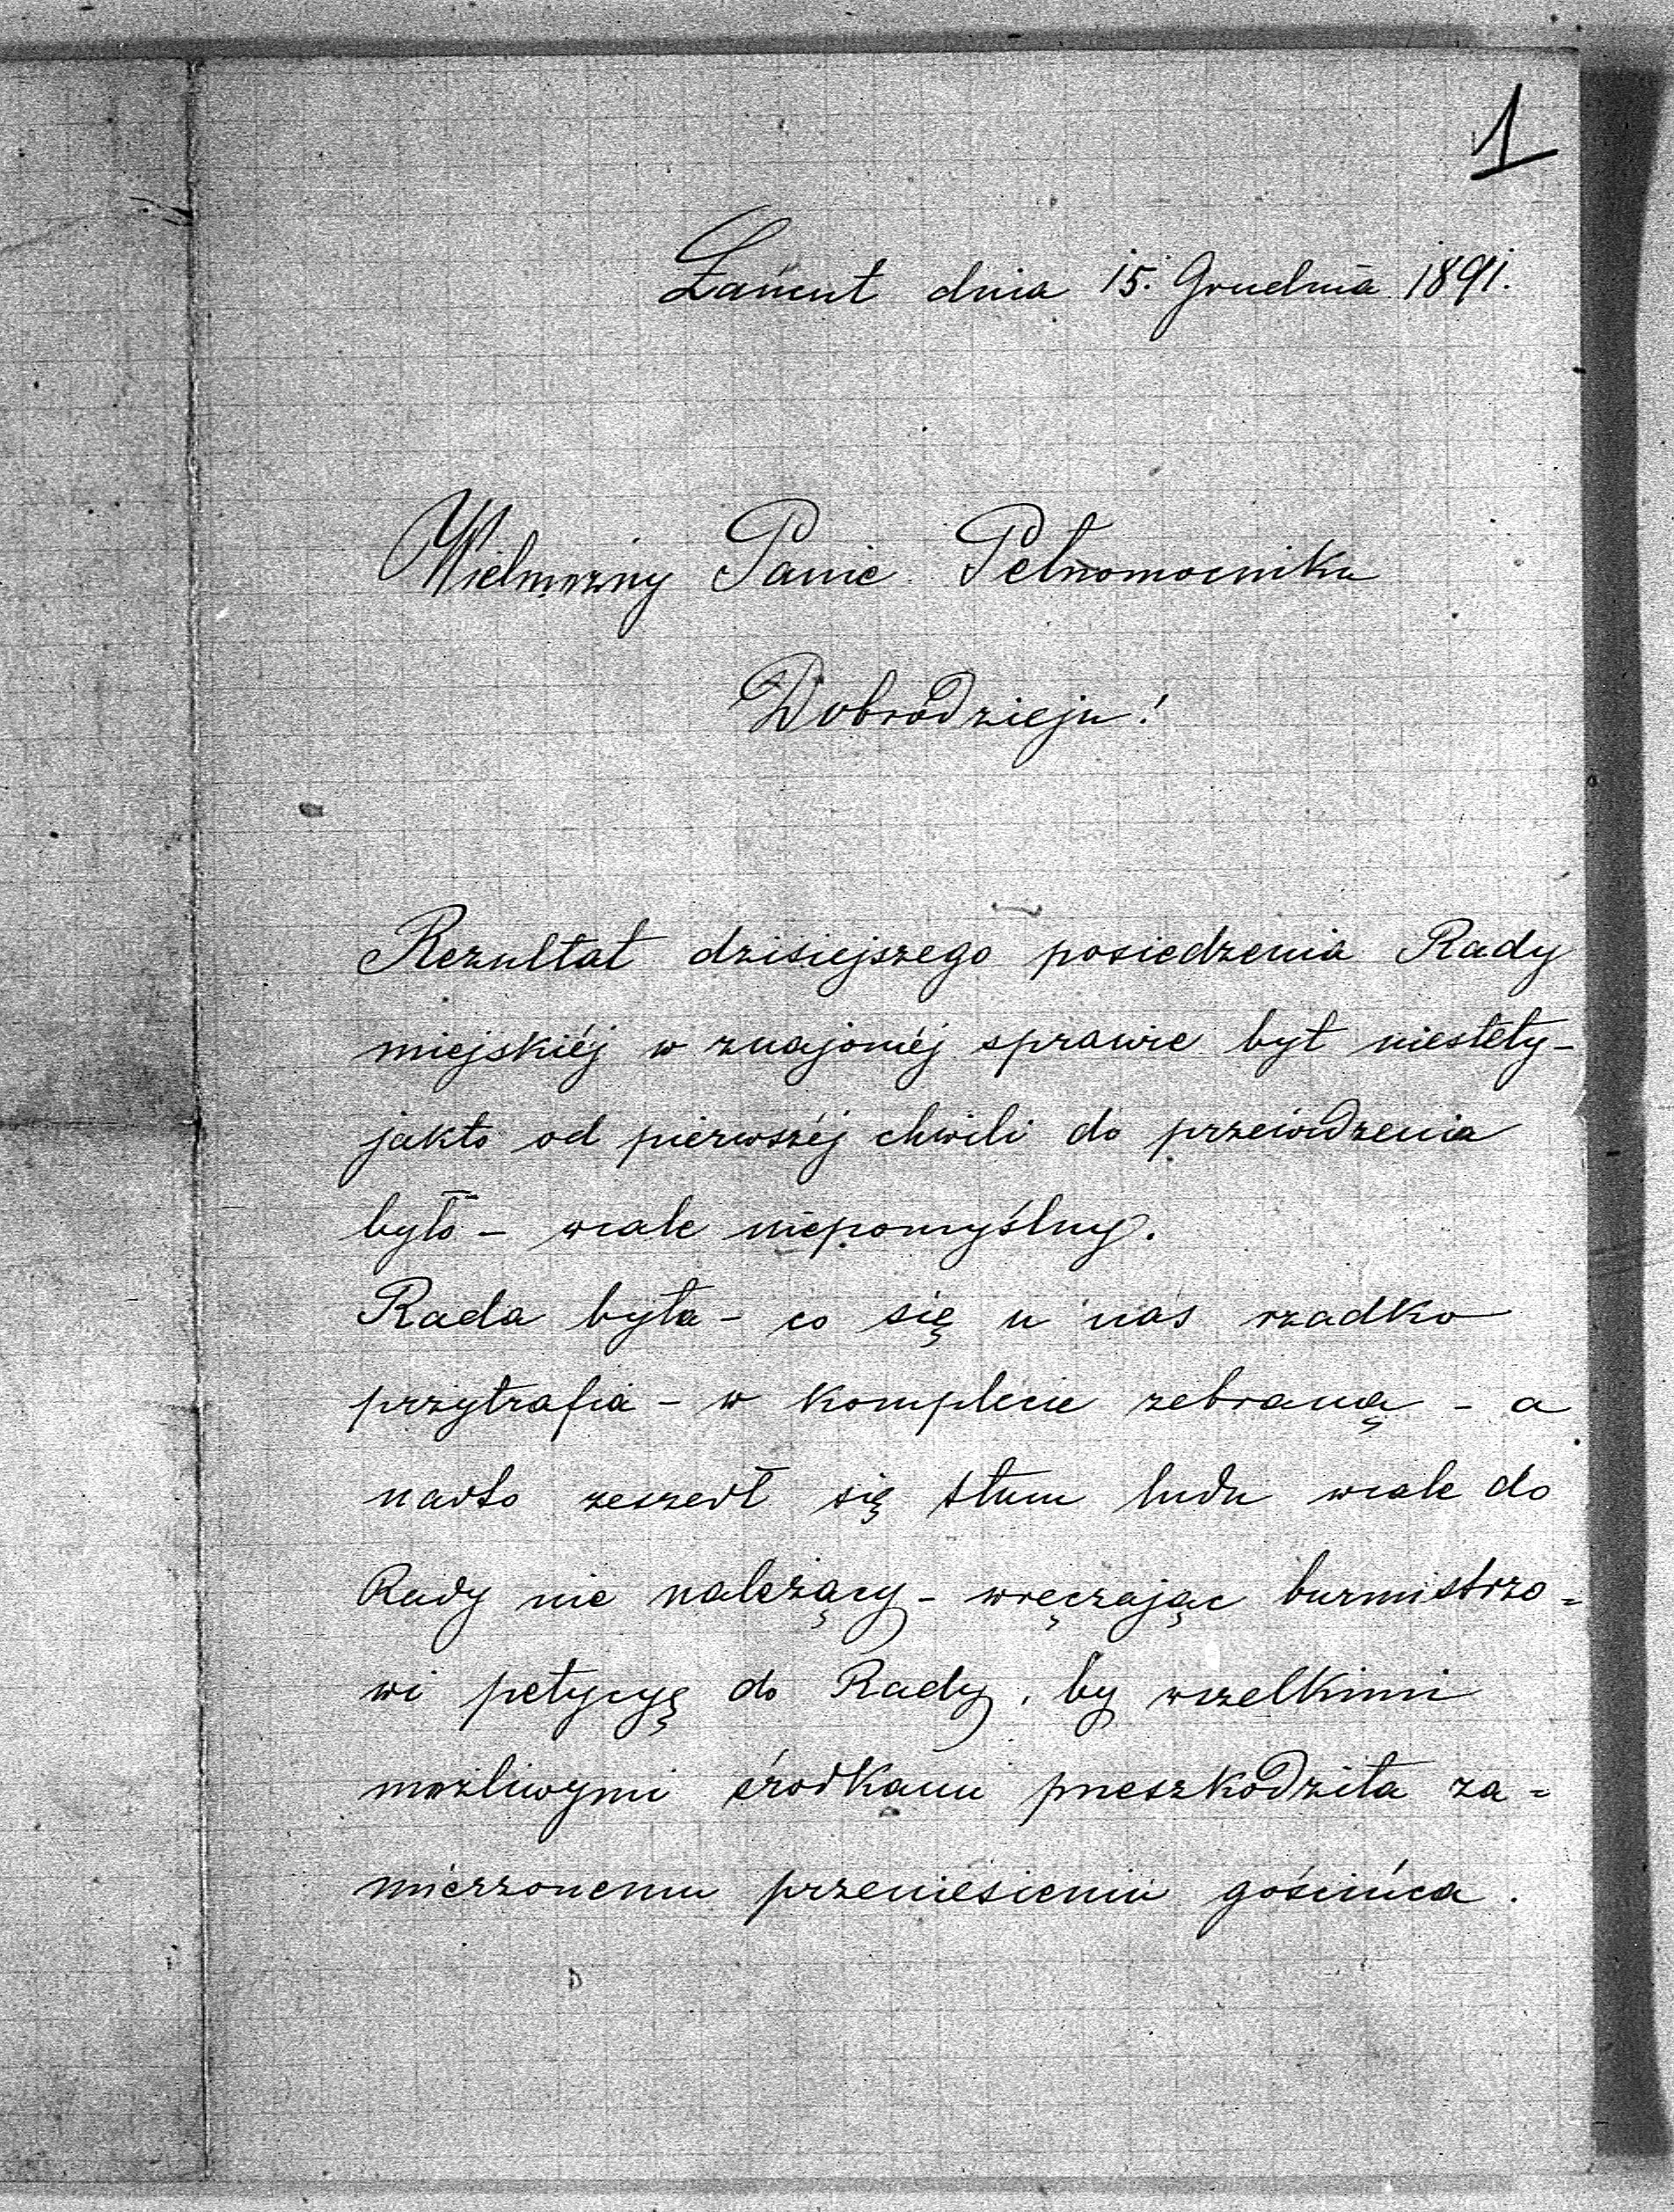 1
Łańcut dnia 15. Grudnia 1891.
Wielmożny Panie Pełnomocniku
Dobrodzieju!
Rezultat dzisiejszego posiedzenia Rady
miejskiéj w znajoméj sprawie był niestety -
jakto od pierwszéj chwili do przewidzenia
było - wcale niepomyślny.
Rada była - co się u nas rzadko
przytrafia - w komplecie zebraną - a
nadto zeszedł się tłum ludu wcale do
Rady nie należący - wręczając burmistrzo=
wi petycyę do Rady, by wszelkimi
możliwymi środkami przeszkodziła za=
mierzonemu przeniesieniu gościńca.